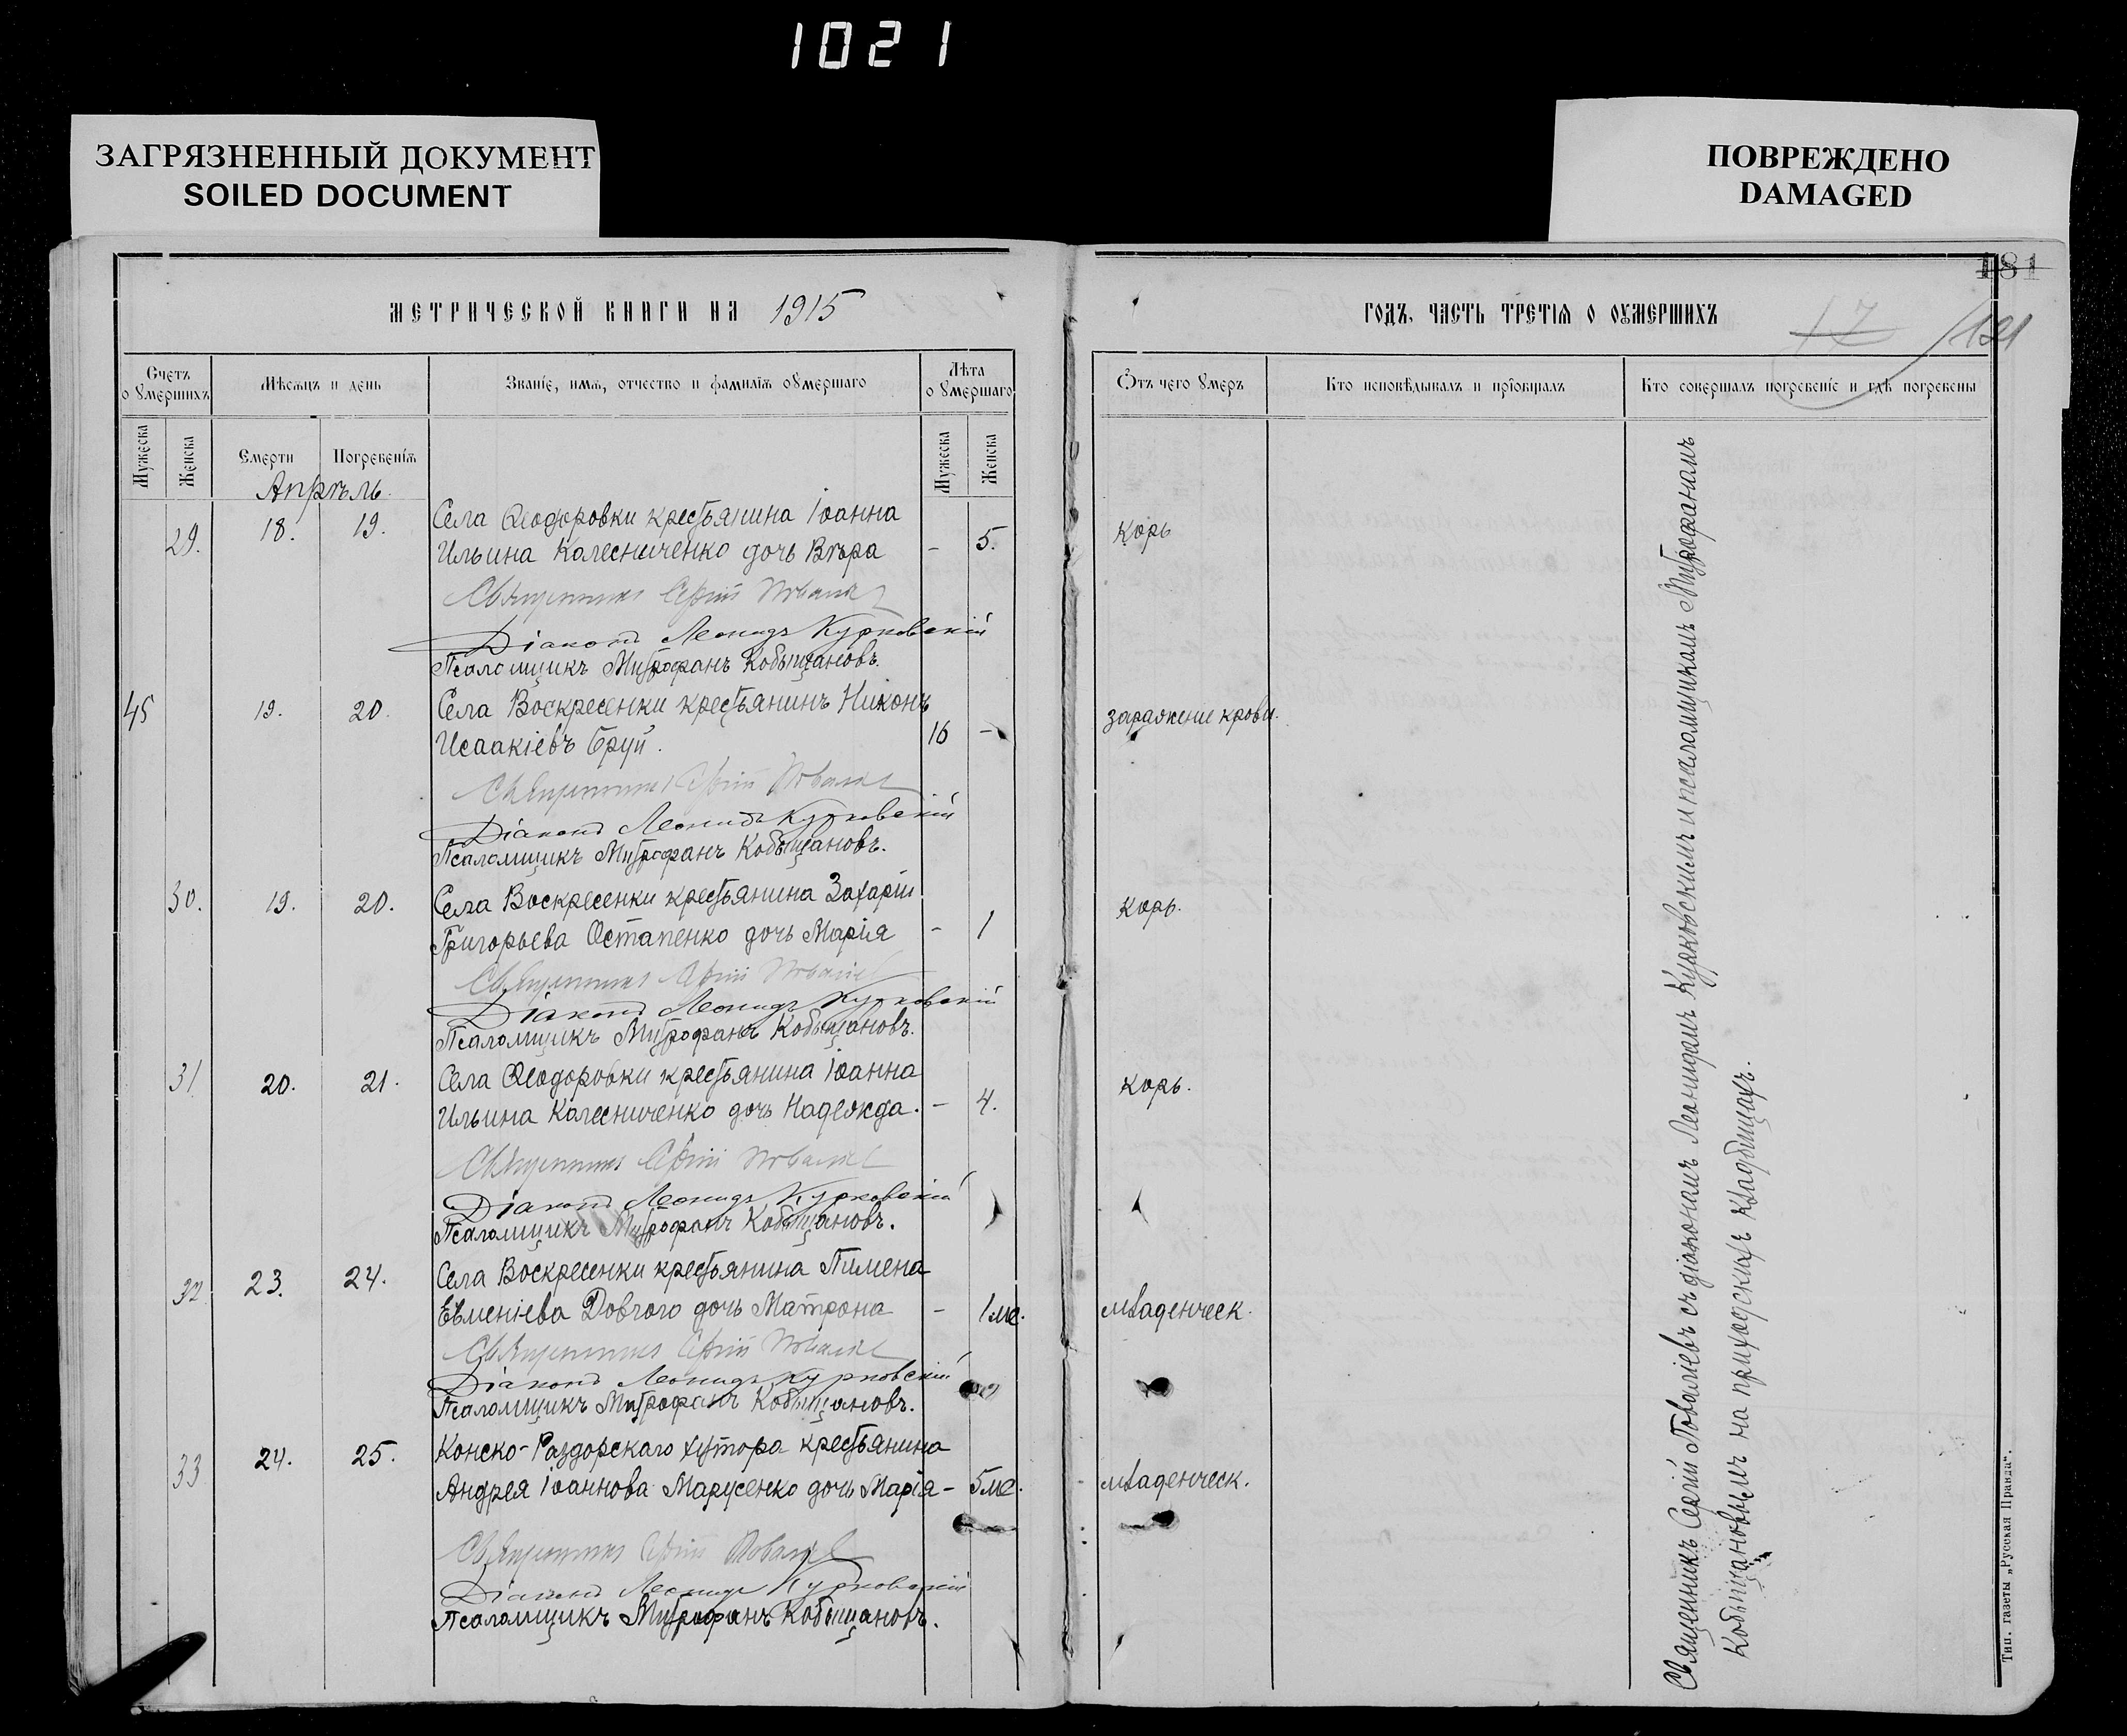 1021
ЗАГРЯЗНЕННЫЙ ДОКУМЕНТ
SOILED DOCUMENT
ПОВРЕЖДЕНО
DAMAGED
181
МЕТРИЧЕСКОЙ КНИГИ НА 1915
ГОДЪ, ЧАСТЬ ТРЕТІЯ О ОУМЕРШИХЪ
17
121
Счетъ оумершихъ
Мѣсяцъ и день
Званіе, имя, отчество и фамилія оумершаго
Лѣта оумершаго
Отъ чего умеръ
Кто исповѣдывалъ и пріобщалъ
Кто совершалъ погребеніе и гдѣ погребены
Мужеска
Женска
Смерти
Погребенія
Мужеска
Женска
Апрѣль.
29. 18. 19. Села Ѳеодоровки крестьянина Іоанна
Ильина Колесниченко дочь Вѣра - 5. Корь
Священникъ Сергій Поваліевъ
Діаконъ Леонидъ Курковскій
Псаломщикъ Митрофанъ Кобыщановъ.
45 19. 20. Села Воскресенки крестьянинъ Никонъ
Исаакіевъ Бруй. 16 - зараженіе крови.
Священникъ Сергій Поваліевъ
Діаконъ Леонидъ Курковскій
Псаломщикъ Митрофанъ Кобыщановъ.
30. 19. 20. Села Воскресенки крестьянина Захарія
Григорьева Остапенко дочь Марія - 1 Корь.
Священникъ Сергій Поваліевъ
Діаконъ Леонидъ Курковскій
Псаломщикъ Митрофанъ Кобыщановъ.
31 20. 21. Села Ѳеодоровки крестьянина Іоанна
Ильина Колесниченко дочь Надежда. - 4. Корь.
Священникъ Сергій Поваліевъ
Діаконъ Леонидъ Курковскій
Псаломщикъ Митрофанъ Кобыщановъ.
32 23. 24. Села Воскресенки крестьянина Пимена
Евменіева Довгого дочь Матрона - 1 ме. младенческ.
Священникъ Сергій Поваліевъ
Діаконъ Леонидъ Курковскій
Псаломщикъ Митрофанъ Кобыщановъ.
33 24. 25. Конско-Раздорскаго хутора крестьянина
Андрея Іоаннова Марусенко дочь Марія - 5 ме. младенческ.
Священникъ Сергій Поваліевъ
Діаконъ Леонидъ Курковскій
Псаломщикъ Митрофанъ Кобыщановъ.
Священникъ Сергій Поваліевъ съ діакономъ Леонидомъ Курковскимъ и псаломщикомъ Митрофаномъ
Кобыщановымъ на приходскихъ кладбищахъ.
Тип. газеты „Русская Правда".